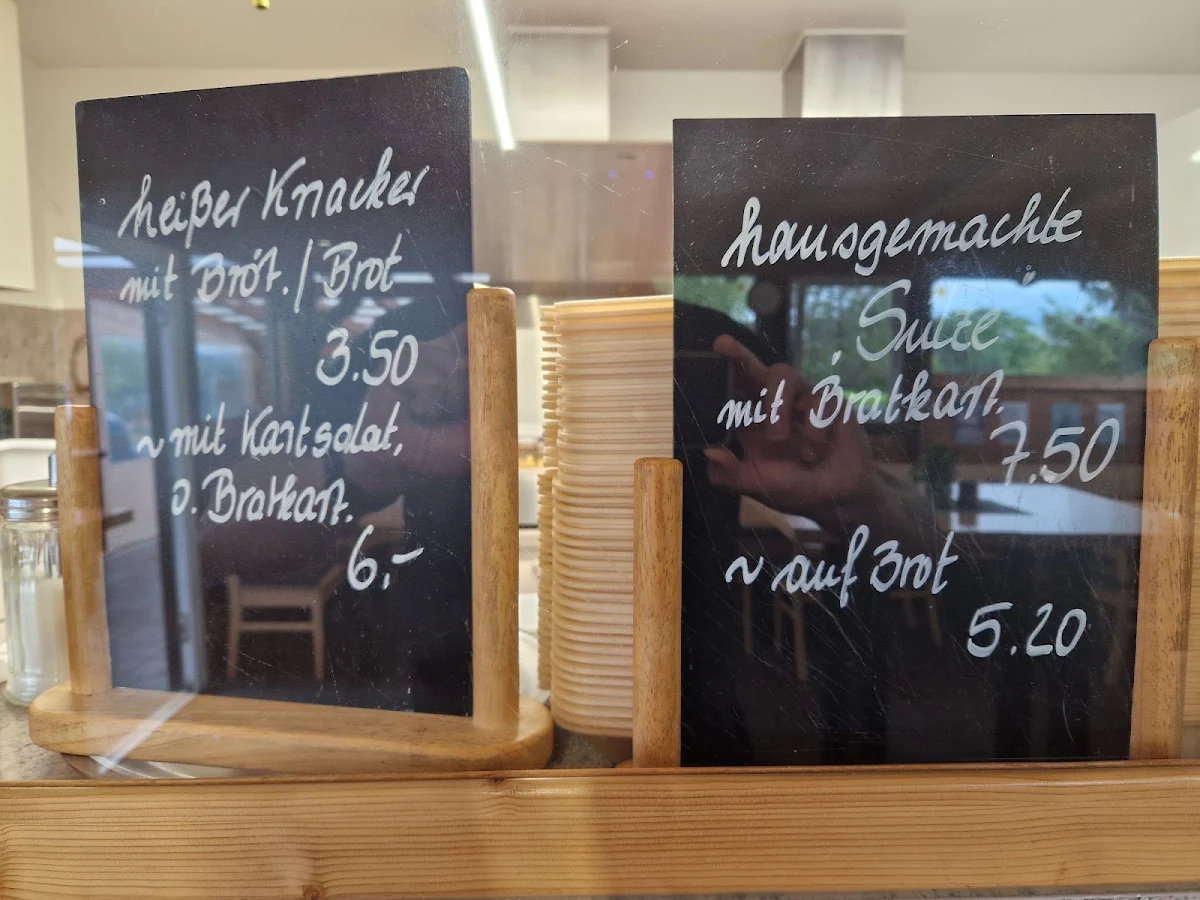 heißer Knacker
mit Bröt. / Brot
3.50
~ mit Kartsalat,
o. Bratkart.
6,-
hausgemachte
"Sülze"
mit Bratkart.
7.50
~ auf Brot
5.20